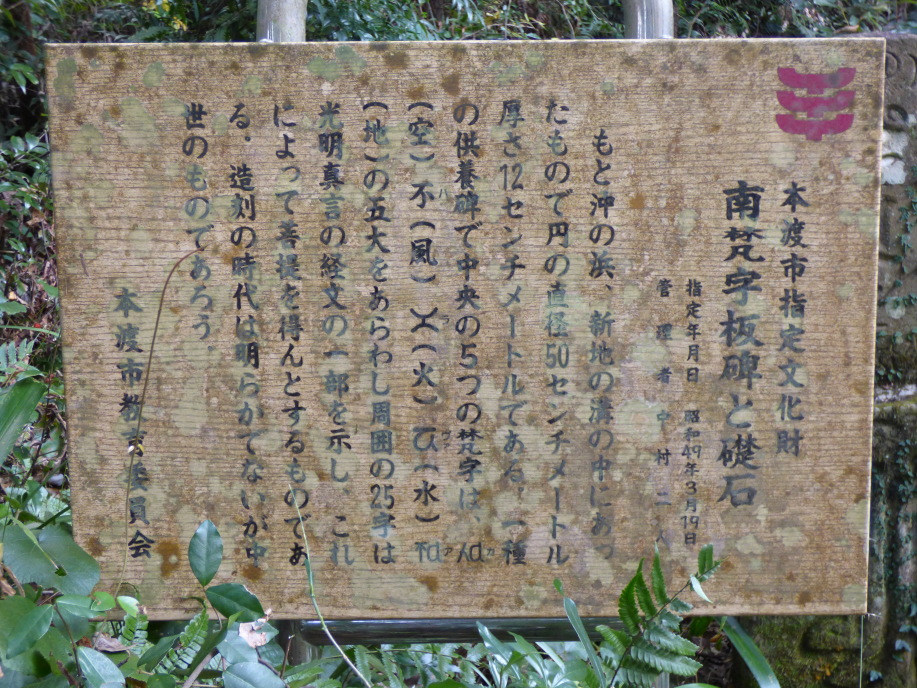 本渡市指定文化財
南梵字板碑と礎石
指定年月日 昭和49年3月19日
管理者 中村二
もと沖の浜、新地の溝の中にあっ
たもので円の直径50センチメートル
厚さ12センチメートルである。一種
の供養碑で中央の5つの梵字は、
(空)(風)(火)(水)
(地)の五大をあらわし周囲の25字は
光明真言の経文の一部を示し、これ
によって菩提を得んとするものであ
る。造刻の時代は明らかでないが中
世のものであろう。
本渡市教育委員会